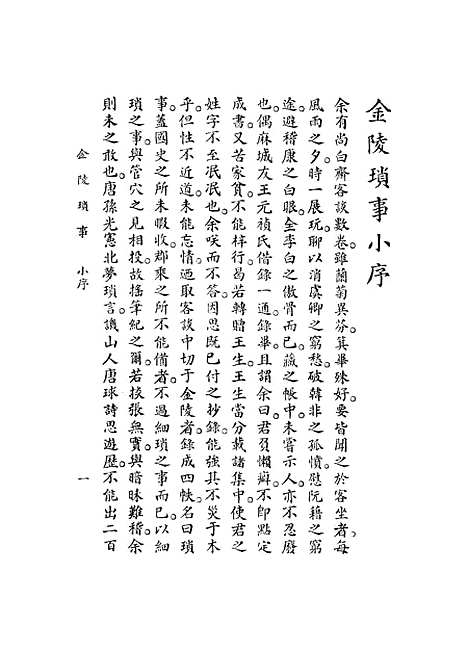 金陵瑣事小序
余有尚白齋客談數卷。雖蘭菊異芬。箕畢殊好。要皆聞之於客坐者。每
風雨之夕。時一展玩。聊以消虞卿之窮愁。破韓非之孤憤。慰阮籍之窮
途。避嵇康之白眼。全李白之傲骨而已。藏之帳中。未嘗示人。亦不忍廢
也。偶麻城友王元禎氏借錄一通。錄畢且謂余曰。君負懶癖。不即點定
成書。又苦家貧。不能梓行。曷若轉贈王生。王生當分載諸集中。使君之
姓字不至泯泯也。余咲而不答。因思既已付之抄錄。能強其不災于木
乎。但性不近道。未能忘情。迺取客談中切于金陵者。錄成四帙。名曰瑣
事。蓋國史之所未暇收。郡乘之所不能備者。不過細瑣之事而已。以細
瑣之事。與管穴之見相投。故搖筆紀之爾。若掞張無實。與暗昧難稽。余
則未之敢也。唐孫光憲北夢瑣言。譏山人唐球詩思遊歷。不能出二百
金陵瑣事 小序 一